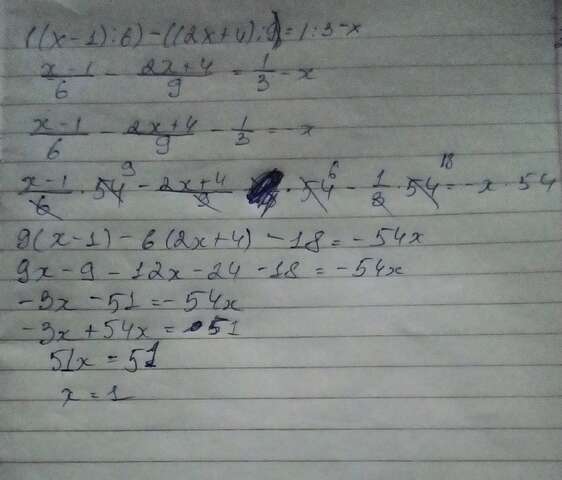 ((x-1):6)-((2x+4):9)=1:3-x
x-1/6 - 2x+4/9 = 1/3 - x
x-1/6 - 2x+4/9 - 1/3 = -x
x-1/6 · 54 9 - 2x+4/9 · 54 6 - 1/3 · 54 18 = -x · 54
9(x-1)-6(2x+4)-18=-54x
9x-9-12x-24-18=-54x
-3x-51=-54x
-3x+54x=51
51x=51
x=1